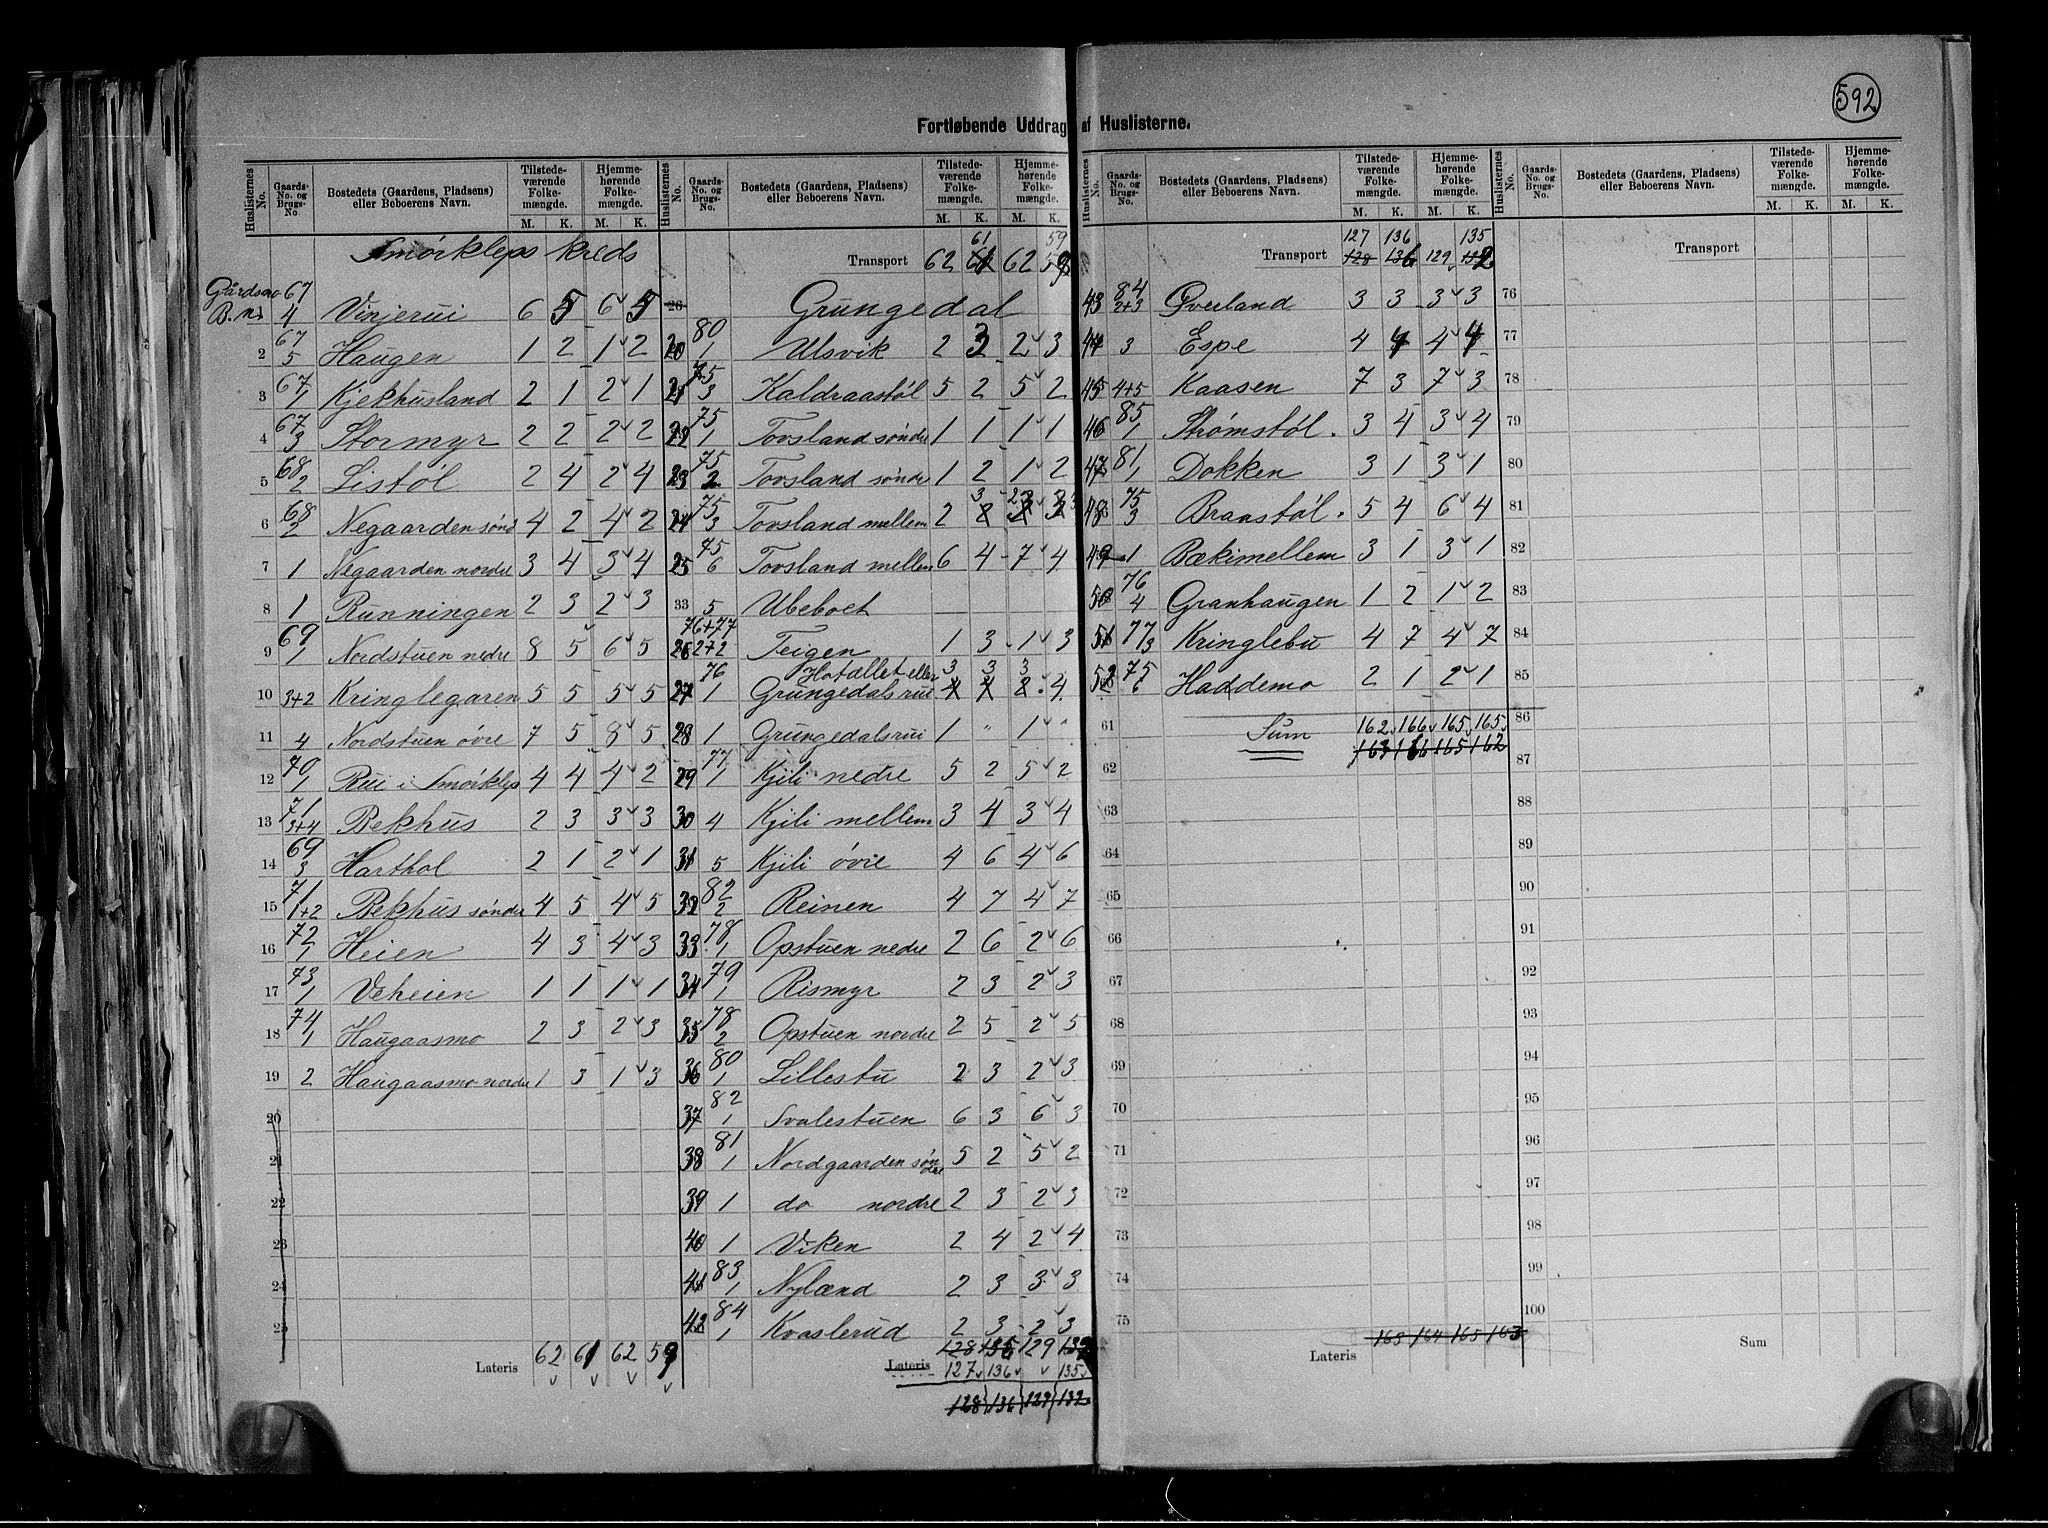 592
Fortløbende Uddrag af Huslisterne.
Huslisternes No. Gaards-No. og Brugs-No. Bostedets (Gaardens, Pladsens) eller Beboerens Navn. Tilstedeværende Folkemængde. M. K. Hjemmehørende Folkemængde. M. K.
Smørkleps kreds
Gårdsno 67
B.nr 4 Vinjerui 6 5 6 5
2 67/5 Haugen 1 2 1 2
3 67/1 Kjekhusland 2 1 2 1
4 67/3 Stormyr 2 2 2 2
5 68/2 Listøl 2 4 2 4
6 68/2 Negaarden sønd 4 2 4 2
7 1 Negaarden nordre 3 4 3 4
8 1 Runningen 2 3 2 3
9 69/1 Nordstuen nedre 8 5 6 5
10 3+2 Kringlegaren 5 5 5 5
11 4 Nordstuen øvre 7 5 8 5
12 70/1 Rui i Smørklep 4 4 4 2
13 71/3+4 Bekhus 2 3 3 3
14 69/3 Harthol 2 1 2 1
15 71/1+2 Bekhus søndre 4 5 4 5
16 72/1 Heien 4 3 4 3
17 73/1 Veheien 1 1 1 1
18 74/1 Haugaasmo 2 3 2 3
19 2 Haugaasmo nordre 1 3 1 3
20
21
22
23
24
25
Lateris 62 61 62 59
Huslisternes No. Gaards-No. og Brugs-No. Bostedets (Gaardens, Pladsens) eller Beboerens Navn. Tilstedeværende Folkemængde. M. K. Hjemmehørende Folkemængde. M. K.
61 59
Transport 62 61 62
26 Grungedal
20 80/1 Ulsvik 2 3 2 3
21 75/3 Kaldraastøl 5 2 5 2
22 75/1 Tovsland søndre 1 1 1 1
23 75/2 Tovsland søndre 1 2 1 2
24 75/3 Tovsland mellem 2 3 2 3
25 75/6 Tovsland mellem 6 4 7 4
33 5 Ubeboet
26 76+77/2+2 Teigen 1 3 1 3
Hotellet eller 3 3 3
27 76/1 Grungedalsrui 4 4 8 4
28 1 Grungedalsrui 1 " 1 "
29 77/1 Kjili nedre 5 2 5 2
30 4 Kjili mellem 3 4 3 4
31 5 Kjili øvre 4 6 4 6
32 82/2 Reinen 4 7 4 7
33 78/1 Opstuen nedre 2 6 2 6
34 79/1 Rismyr 2 3 2 3
35 78/2 Opstuen nordre 2 5 2 5
36 80/1 Lillestu 2 3 2 3
37 82/1 Svalestuen 6 3 6 3
38 81/1 Nordgaarden søndre 5 2 5 2
39 1 do nordre 2 3 2 3
40 1 Viken 2 4 2 4
41 83/1 Nylænd 2 3 3 3
42 84/1 Kvaslerud 2 3 2 3
128 136 129 132
Lateris 127 136 135
128 136 129 132
Huslisternes No. Gaards-No. og Brugs-No. Bostedets (Gaardens, Pladsens) eller Beboerens Navn. Tilstedeværende Folkemængde. M. K. Hjemmehørende Folkemængde. M. K.
127 136 135
Transport 128 136 129 132
43 84/2+3 Øverland 3 3 3 3
44 3 Espe 4 4 4 4
45 4+5 Kaasen 7 3 7 3
46 85/1 Strømstøl. 3 4 3 4
47 81/1 Dokken 3 1 3 1
48 75/3 Braastøl. 5 4 6 4
49 1 Bækimellem 3 1 3 1
50 76/4 Granhaugen 1 2 1 2
51 77/3 Kringlebu 4 7 4 7
52 75/6 Haddemo 2 1 2 1
61 Sum 162 166 165 165
163 166 165 162
62
63
64
65
66
67
68
69
70
71
72
73
74
75
163 164 165 163
Lateris
Huslisternes No. Gaards-No. og Brugs-No. Bostedets (Gaardens, Pladsens) eller Beboerens Navn. Tilstedeværende Folkemængde. M. K. Hjemmehørende Folkemængde. M. K.
Transport
76
77
78
79
80
81
82
83
84
85
86
87
88
89
90
91
92
93
94
95
96
97
98
99
100
Sum